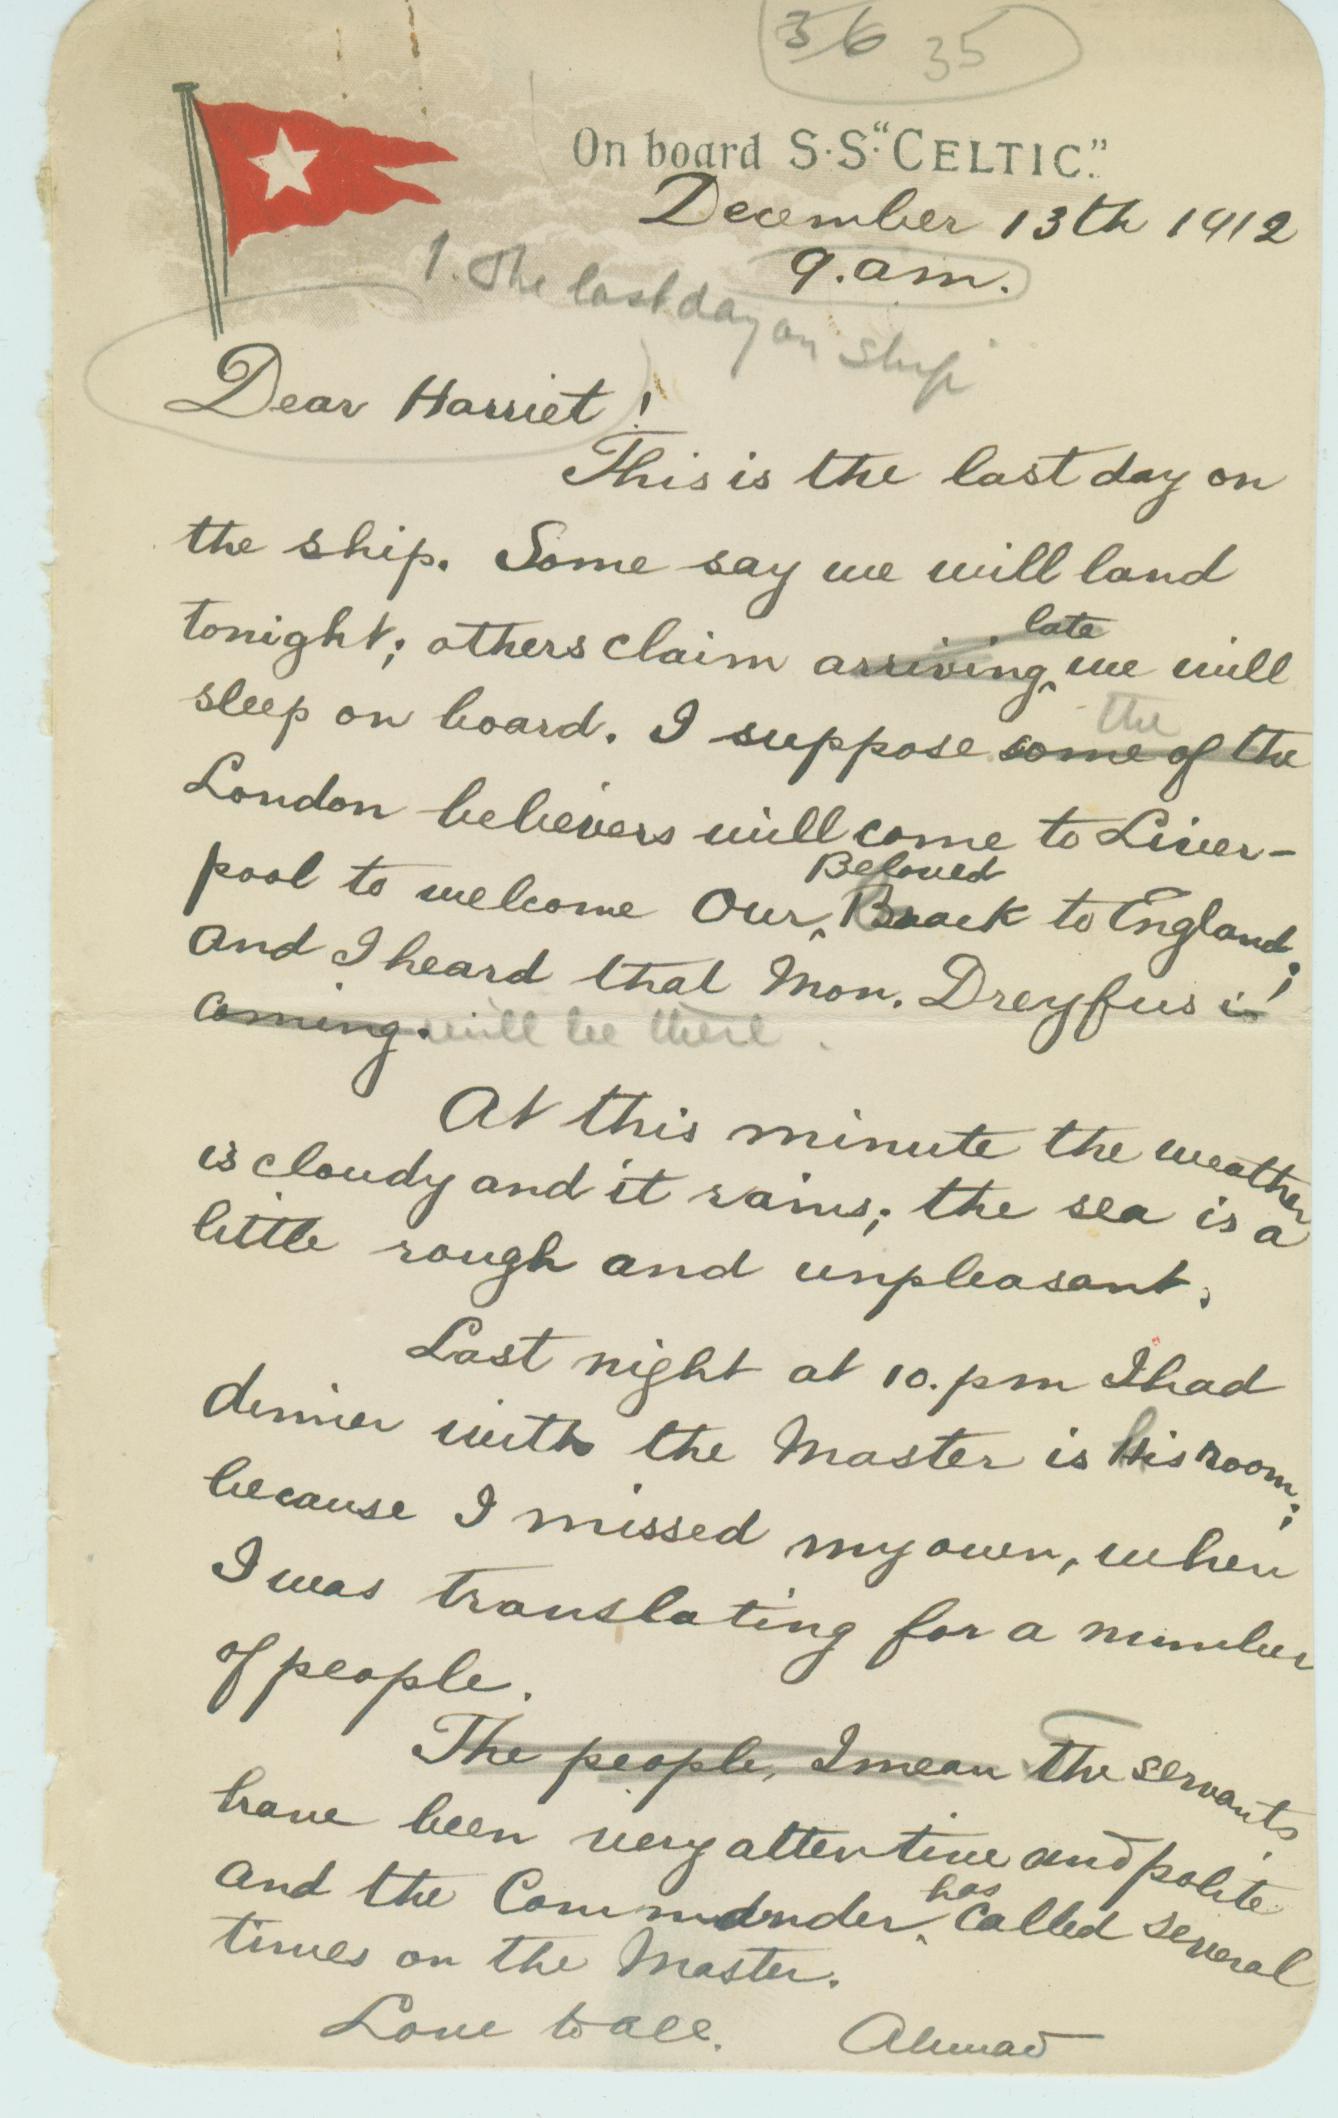 36 35
On board S.S. "CELTIC."
December 13th 1912
9.am.
1. The last day on ship
Dear Harriet!
This is the last day on
the ship. Some say we will land
late
tonight; others claim arriving we will
the
sleep on board. I suppose some of the
London believers will come to Liver-
Beloved
pool to welcome Our Back to England;
and I heard that Mon. Dreyfus is
coming. will be there.
At this minute the weather
is cloudy and it rains; the sea is a
little rough and unpleasant.
Last night at 10.pm I had
dinner with the Master is His room;
because I missed my own, when
I was translating for a number
of people.
The people, I mean the servants
have been very attentive and polite
has
and the Commander, called several
times on the Master.
Love to all. Ahmad